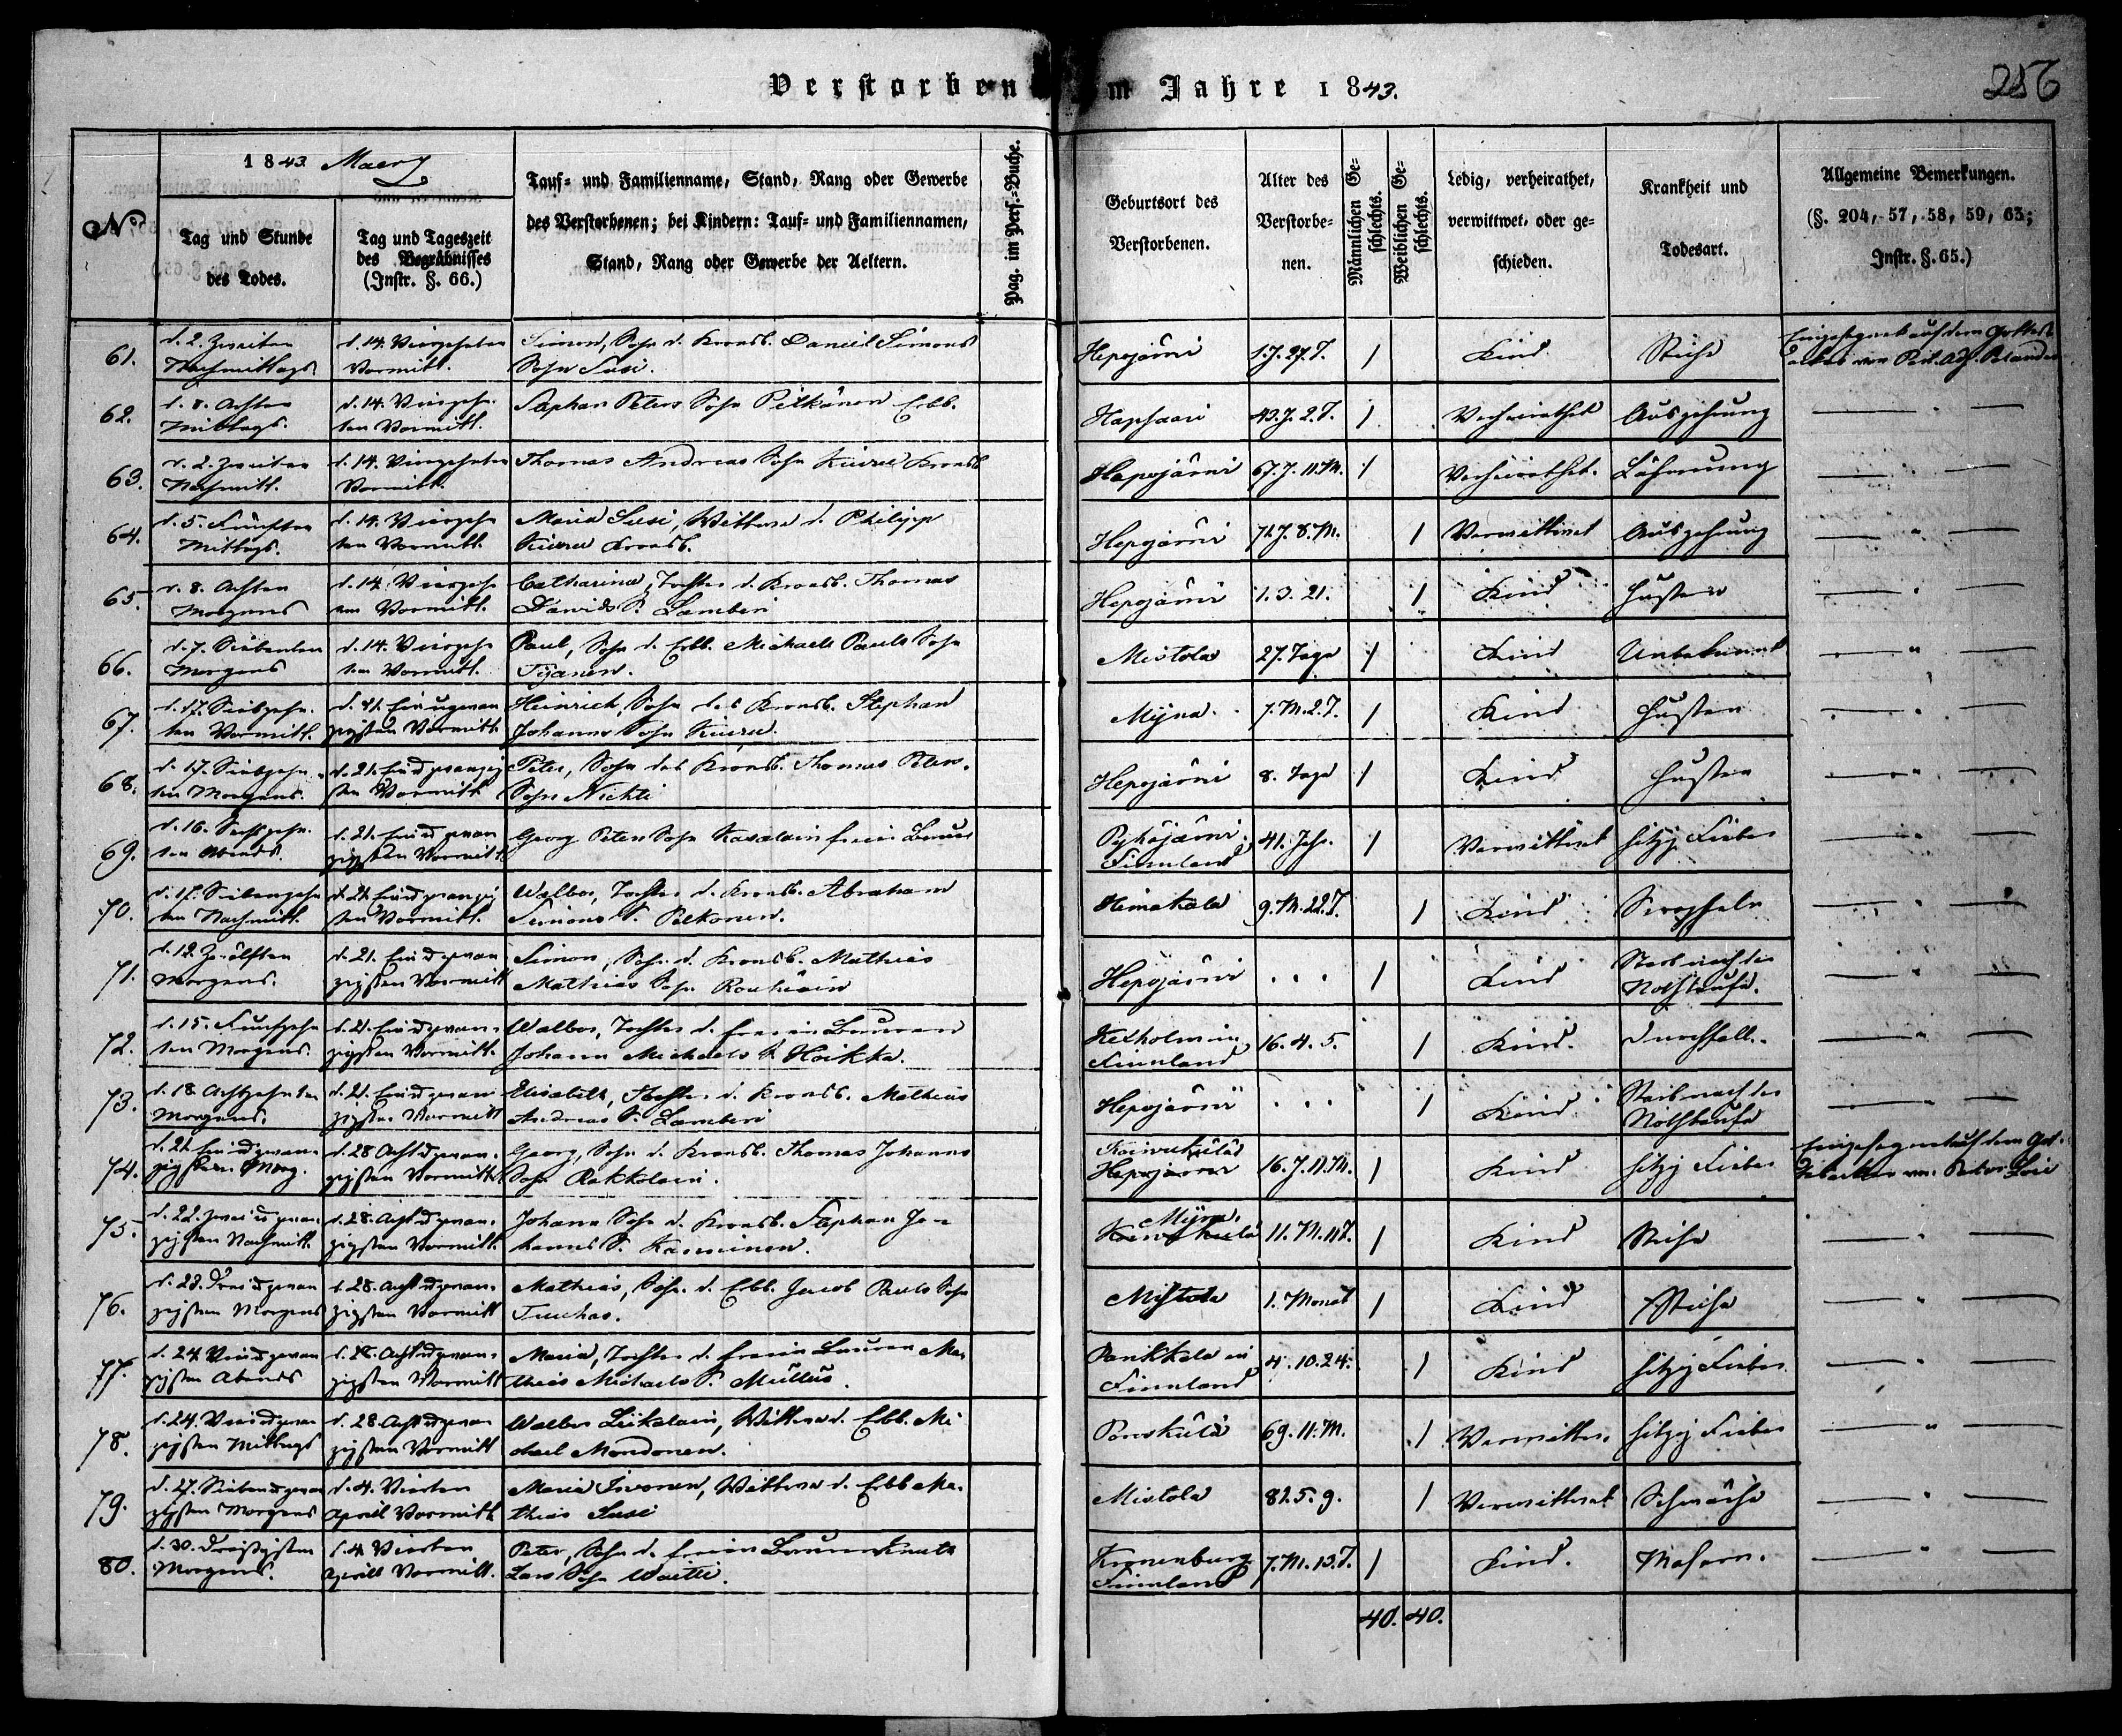 Verstorben im Jahre 1843.
256
No
1843 Maerz
Tag und Stunde des Todes.
Tag und Tageszeit des Begräbnisses (Instr. §. 66.)
Tauf- und Familienname, Stand, Rang oder Gewerbe des Verstorbenen; bei Kindern: Tauf- und Familiennamen, Stand, Rang oder Gewerbe der Aeltern.
Pag. im Pers.-Buche.
Geburtsort des Verstorbenen.
Alter des Verstorbenen.
Männlichen Geschlechts.
Weiblichen Geschlechts.
Ledig, verheirathet, verwittwet, oder geschieden.
Krankheit und Todesart.
Allgemeine Bemerkungen. (§. 204, 57, 58, 59, 63; Instr. §. 65.)
61. d. 2. Zweiten Nachmittags d. 14. Vierzehnten Vormitt. Simon, Sohn d. Kronsb. Daniel Simons Sohn Susi. Hepojärwi 1. J. 27. T. 1 Kind
Eingesegnet auf dem Gottes-
62. d. 8. Achten Mittags. d. 14. Vierzehnten Vormitt. Staphan Peters Sohn Pilkänen Erbb. Haphaari 43. J. 2. T. 1 Verheirathet Auszehrung — " —
63. d. 2. Zweiten Nachmitt. d. 14. Vierzehnten Vormitt. Thomas Andreas Sohn Kiuru Kronsb Hepojärwi 67. J. 11. M. 1 Verheirathet. Lähmung — " —
64. d. 5. Fünften Mittags. d. 14. Vierzehnten Vormitt. Maria Susi, Wittwe d. Philipp Kiuru Kronsb. Hepojärwi 71. J. 8. M. 1 Verwittwet Auszehrung — " —
65. d. 8. Achten Morgens d. 14. Vierzehnten Vormitt. Catharina, Tochter d. Kronsb. Thomas Davids S. Lamberi Hepojärwi 1. 3. 21. 1 Kind Husten — " —
66. d. 7. Siebenten Morgens d. 14. Vierzehnten Vormitt. Paul, Sohn d. Erbb. Michaels Pauls Sohn Tijanen. Mistola 27. Tage 1 Kind Unbekannt — " —
67. d. 17. Siebzehnten Vormitt. d. 21. Einundzwanzigsten Vormitt Heinrich, Sohn des Kronsb. Stephan Johanns Sohn Kiuru. Mijna. 7. M. 2. T. 1 Kind Husten — " —
68. d. 17. Siebzehnten Morgens. d. 21. Einundzwanzigsten Vormitt Peter, Sohn des Kronsb. Thomas Peters. Sohn Nichti Hepojärwi 8. Tage 1 Kind Husten — " —
69. d. 16. Sechszehnten Abends. d. 21. Einundzwanzigsten Vormitt Georg Peters Sohn Kasalain freier Bauer Pyhäjärwi Finnland 41. Jah. 1 Verwittwet hitzig Fieber — " —
70. Siebenzehnten Nachmitt. d. 21. Einundzwanzigsten Vormitt. Walbor, Tochter d. Kronsb. Abraham Simons S. Pelkonen. Himakala 9. M. 22. T. 1 Kind Scropheln — " —
71. d. 12. Zwölften Morgens. d. 21. Einundzwanzigsten Vormitt Simon, Sohn d. Kronsb. Mathias Mathias Sohn Rouhiain Hepojärwi . . . 1 Kind Starb nach der Nothtaufe. — " —
72. d. 15. Funfzehnten Morgens. d. 21. Einundzwanzigsten Vormitt. Walbor, Tochter d. freien Bauern Johann Michaels S. Hoikka. Kexholm in Finnland 16. 4. 5. 1 Kind. Durchfall. — " —
73. d. 18. Achtzehnten Morgens. d. 21. Einundzwanzigsten Vormitt Elisabeth, Tochter d. Kronsb. Mathias Andreas S. Lamberi Hepojärwi . . . 1 Kind Starb nach der Nothtaufe — " —
74. d. 21. Einundzwanzigsten Morg. d. 28 Achtundzwanzigsten Vormitt Georg, Sohn d. Kronsb. Thomas Johanns Sohn Rakkolain. Koiwukülä Hepojärwi 16. J. 11. M. 1 Kind hitzig Fieber
Eingesegnet auf dem Got-
75. d. 22. Zweiundzwanzigsten Nachmitt. d. 28. Achtundzwanzigsten Vormitt. Johann Sohn d. Kronsb. Staphan Johanns S. Kanninen. Mijna. Koiwukülä 11. M. 11 T. 1 Kind — " —
76. d. 23. Dreiundzwanzigsten Morgens d. 28. Achtundzwanzigsten Vormitt Mathias, Sohn d. Erbb. Jacob Pauls Sohn Tuuhas. Mistola 1. Monat 1 Kind — " —
77. d. 24 Vierundzwanzigsten Abends d. 28. Achtundzwanzigsten Vormitt Maria, Tochter d. freien Bauern Mathias Michaels S. Mullus. Pankkala in Finnland 4. 10. 24. 1 Kind hitzig Fieber. — " —
78. d. 24. Vierundzwanzigsten Mittags d. 28. Achtundzwanzigsten Vormitt Walbor Liikalain, Wittwe d. Erbb. Michael Mondonen. Porokülä 69. 11. M. 1 Verwittw. hitzig Fieber — " —
79. d. 27. Siebenundzwanzigsten Morgens d. 4. Vierten April Vormitt Maria Iivonen, Wittwe d. Erbb Mathias Susi Mistola 81. 5. 9. 1 Verwittwet Schwäche — " —
80. d. 30. Dreißigsten Morgens. d. 4. Vierten April Vormitt. Peter, Sohn d. freien Bauern Knuts Lars Sohn Waitti. Kronenburg Finnland 7. M. 13. T. 1 Kind. Masern. — " —
40. 40.